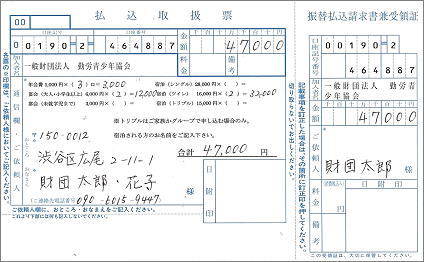 00 払込取扱票
口座記号 口座番号
00190 2 464887
金額 47000
加入者名 一般財団法人 勤労青少年協会
料金 備考
年会費 1,000円×( 3 )口= 3,000 宿泊(シングル) 28,000円×( )
宴会(大人・小学生以上) 6,000円×( 2 )=12,000 宿泊(ツイン) 16,000円×( 2 )=32,000
宴会(未就学児まで) 3,000円×( ) 宿泊(トリプル) 15,000円×( )
※トリプルはご家族か・グループで申し込む場合のみ。
宿泊される方のお名前をご記入下さい。
合計 47,000 円
通信欄・ご依頼人
〒150-0012
渋谷区広尾2-11-1
財団太郎・花子 様
(ご連絡先電話番号 090-6015-9447)
ご依頼人様に、おところ・おなまえをご記入ください。
これより下部には何も記入しないでください。
日附印
各票の※印欄は、ご依頼人様においてご記入ください。
切り取らないでお出しください。
記載事項を訂正した場合は、その箇所に訂正印を押してください。
振替払込請求書兼受領証
口座記号番号
00190 2
464887
加入者名 一般財団法人 勤労青少年協会
金額 47000
ご依頼人 財団太郎 様
料金 日附印
備考
この受領証は、大切に保管してください。